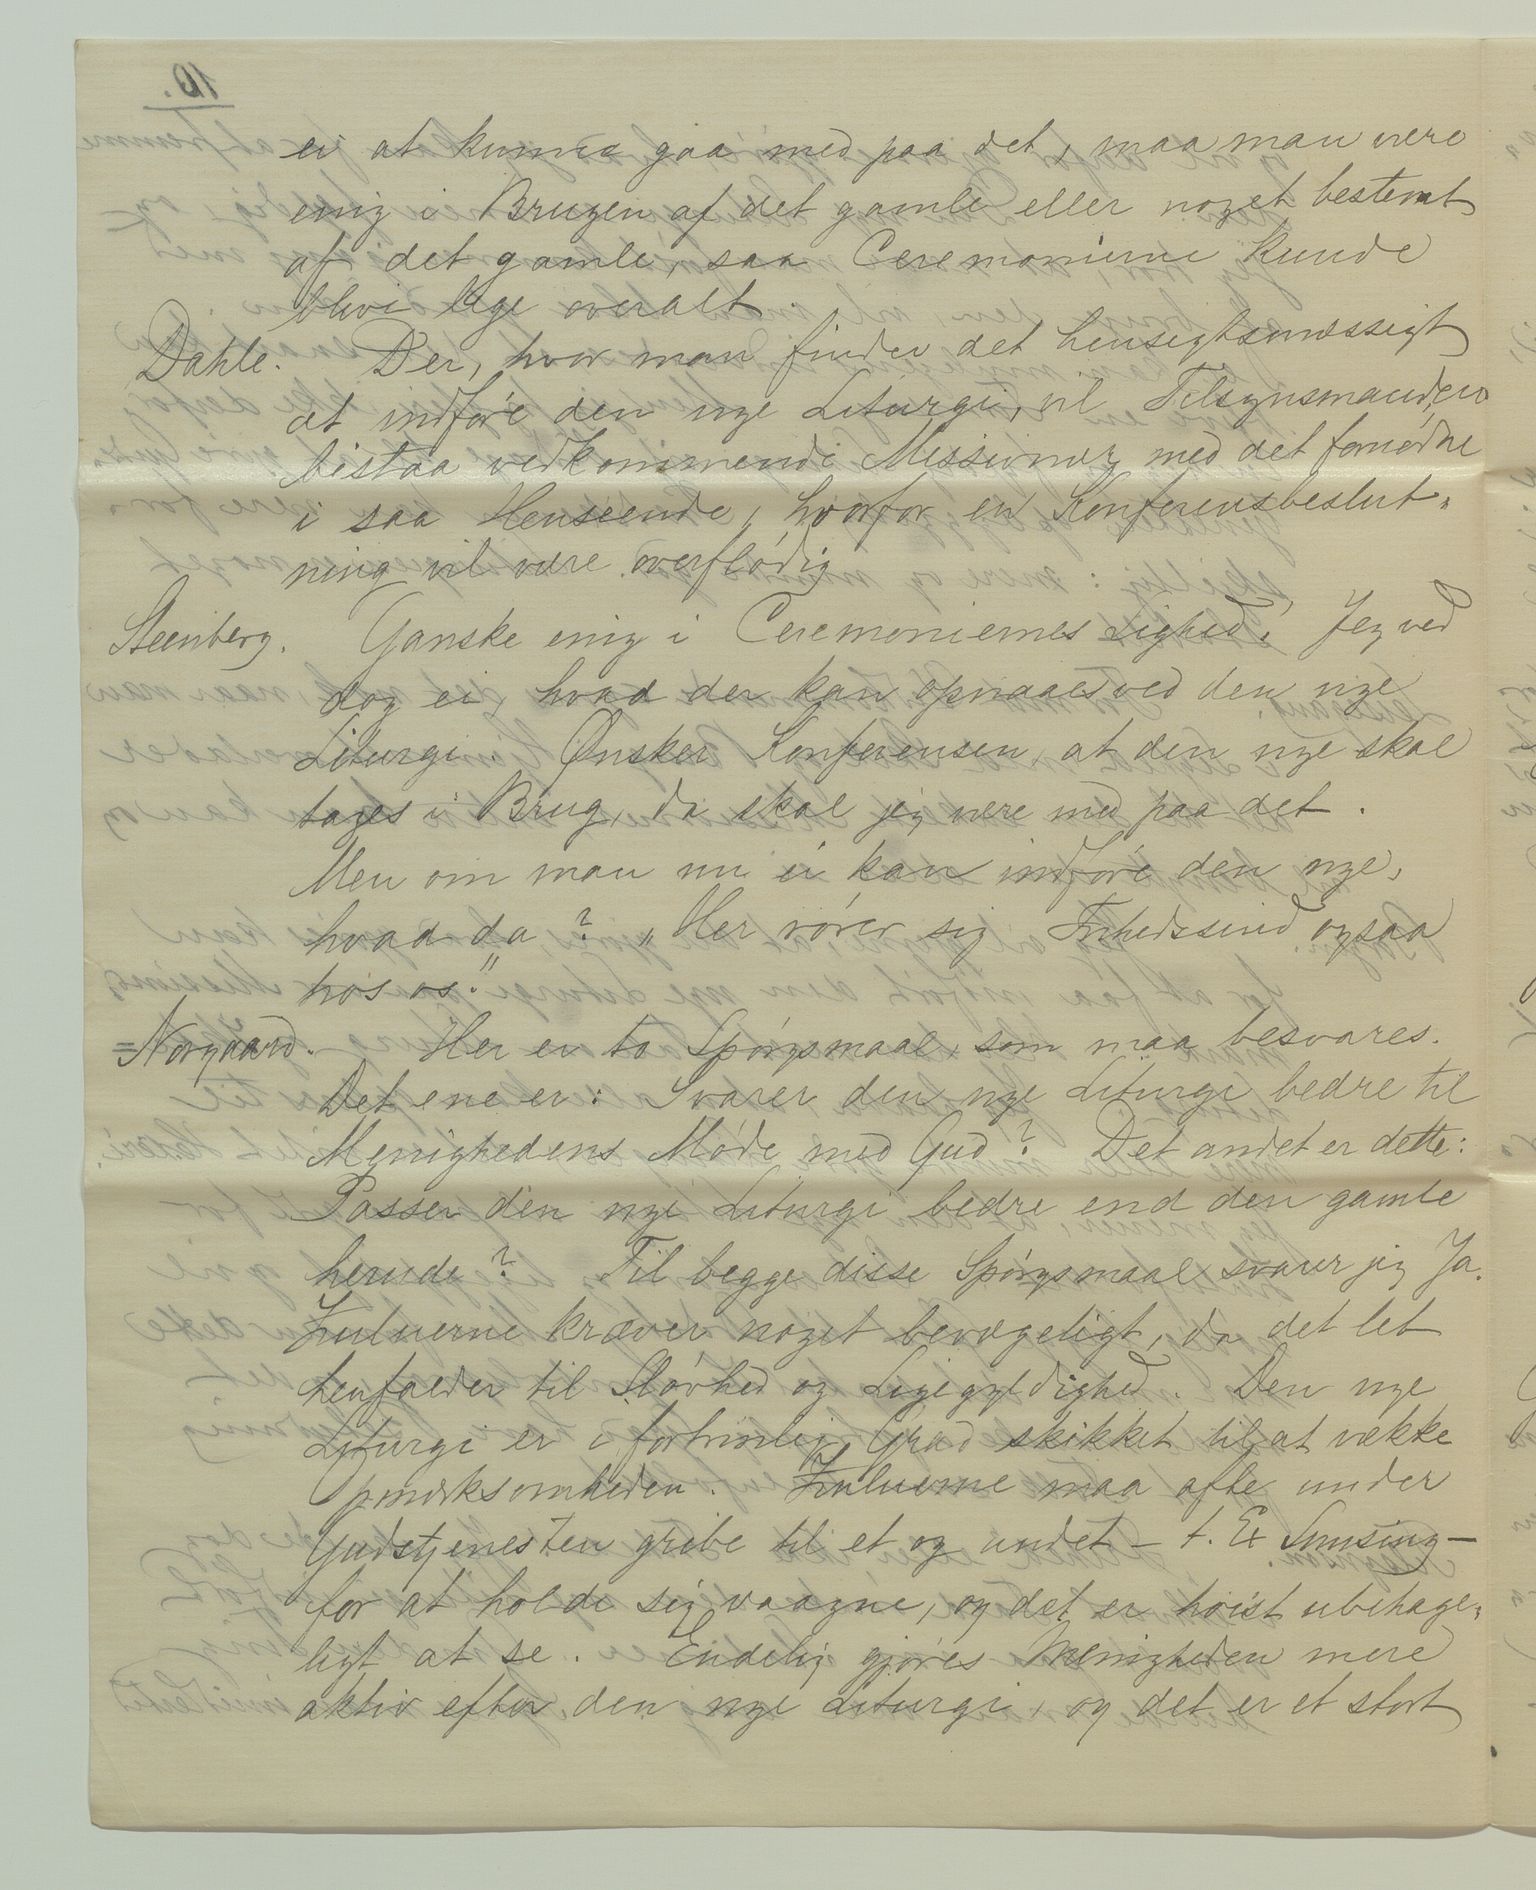 10.
ei at kunne gaa med paa det, maa man være
enig i Brugen af det gamle eller noget bestemt
af det gamle, saa Ceremonierne kunde
blive lige overalt.
Dahle. Der, hvor man finder det hensigtsmæssigt
at indføre den nye Liturgi, vil Tilsynsmanden
bistaa vedkommende Missionær med det fornødne
i saa Henseende, hvorfor en Konferensbeslut-
ning vil være overflødig
Steenberg. Ganske enig i Ceremoniernes Lighed. Jeg ved
dog ei, hvad der kan opnaaes ved den nye
Liturgi. Ønsker Konferensen, at den nye skal
tages i Brug, da skal jeg være med paa det.
Men om man nu ei kan indføre den nye,
hvad da? „Her rører sig Frihedssind ogsaa
hos os."
Norgaard. Her er to Spørgsmaal, som maa besvares.
Det ene er: Svarer den nye Liturgi bedre til
Menighedens Møde med Gud? Det andet er dette:
Passer den nye Liturgi bedre end den gamle
herude? Til begge disse Spørgsmaal svarer jeg Ja.
Zuluerne kræver noget bevægeligt, da det let
henfalder til Sløvhed og Ligegyldighed. Den nye
Liturgi er i fortrinlig Grad skikket til at vække
Opmærksomheden. Zuluerne maa ofte under
Gudstjenesten gribe til et og andet – t. Ex Snusing –
for at holde sig vaagne, og det er høist ubehage-
ligt at se. Endelig gjøres Menigheden mere
aktiv efter den nye Liturgi, og det er et stort